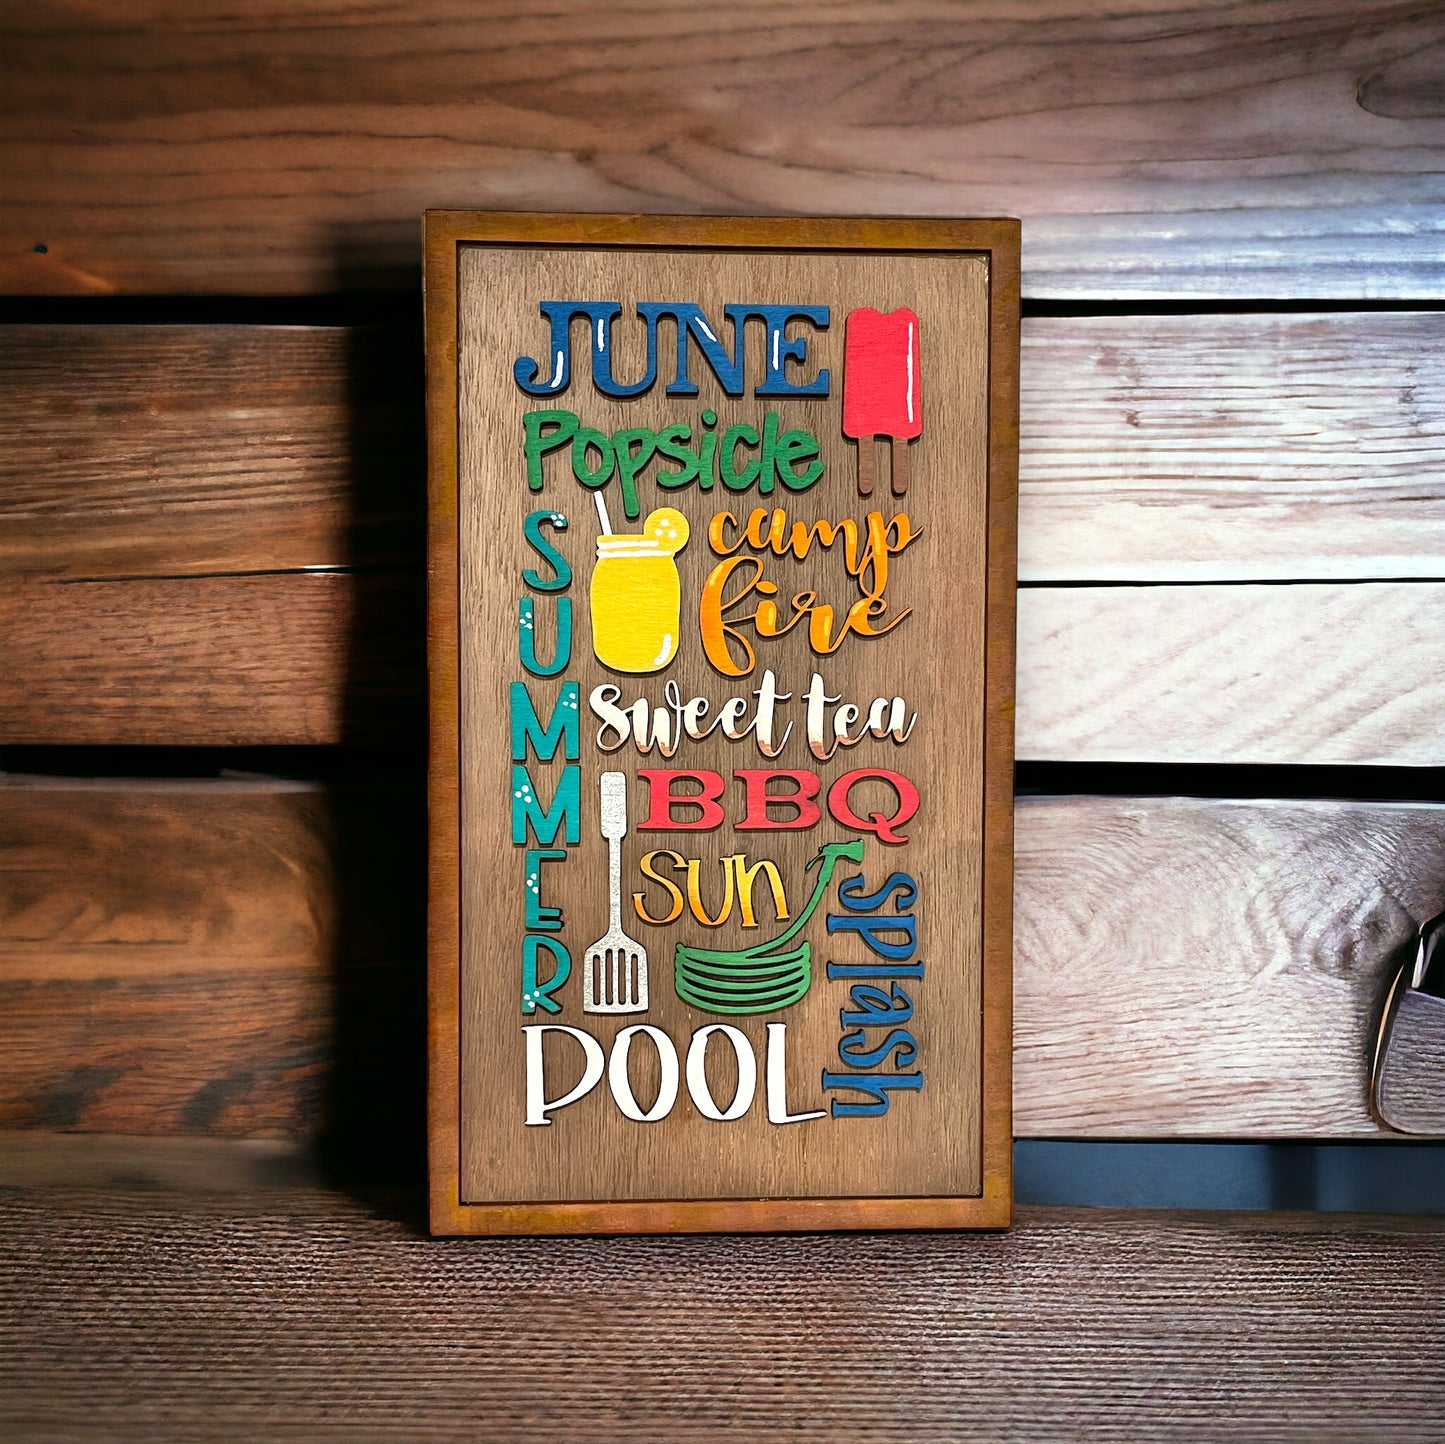 JUNE
Popsicle
SUMMER
camp
fire
sweet tea
BBQ
sun
splash
POOL